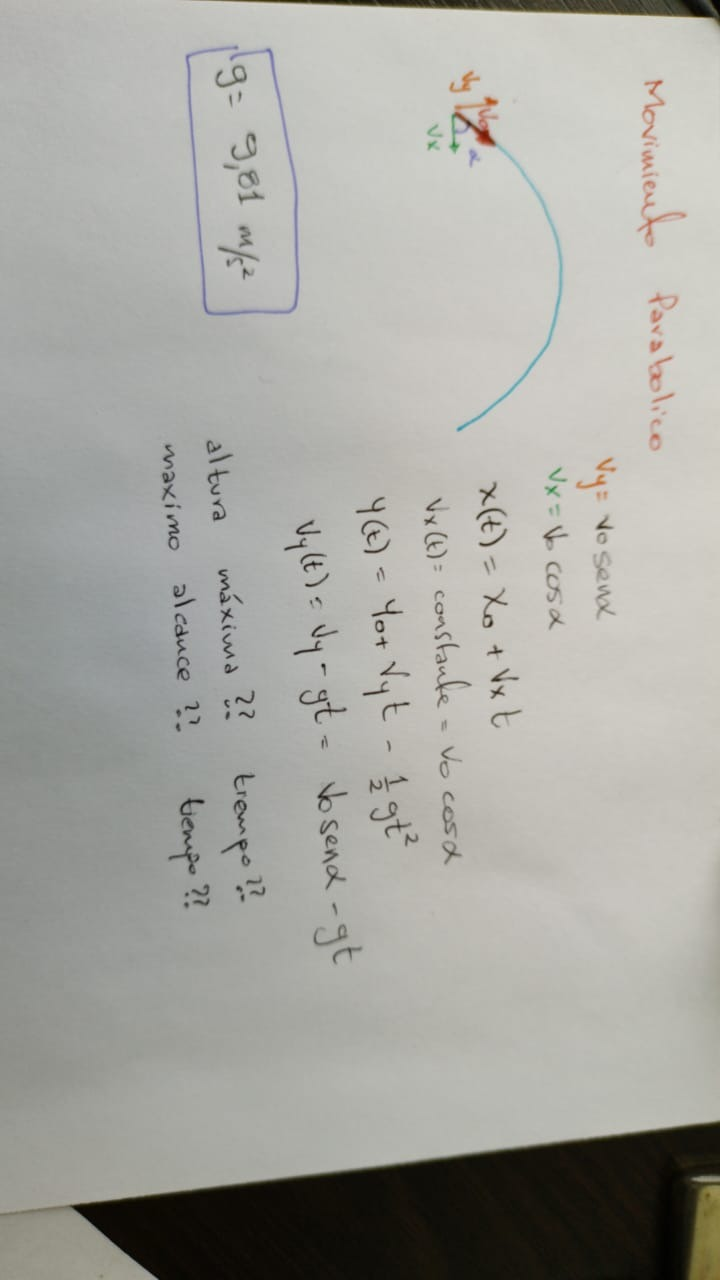 Movimiento Parabolico
Vy V0 α
Vx
Vy = V0 senα
Vx = V0 cosα
x(t) = x0 + Vx t
Vx(t) = constante = V0 cosα
y(t) = y0 + Vy t - 1/2 gt²
Vy(t) = Vy - gt = V0 senα - gt
g = 9,81 m/s²
altura máxima ?? tiempo ??
maximo alcance ?? tiempo ??